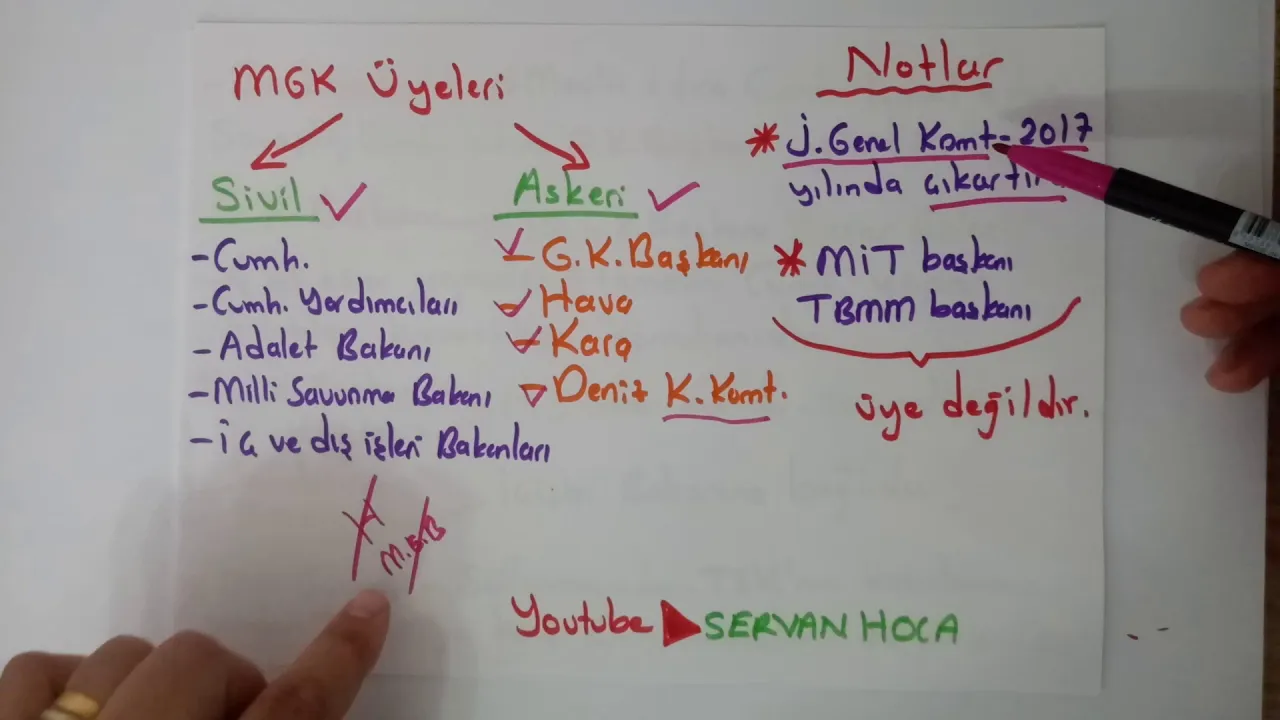 MGK Üyeleri
Sivil
- Cumh.
- Cumh. Yardımcıları
- Adalet Bakanı
- Milli Savunma Bakanı
- İç ve dış işleri Bakanları
M.E.B
Askeri
- G.K.Başkanı
- Hava
- Kara
- Deniz K.Komt.
Notlar
* J.Genel Komt- 2017
yılında
* MİT başkanı
TBMM başkanı
üye değildir.
Youtube ▶ SERVAN HOCA